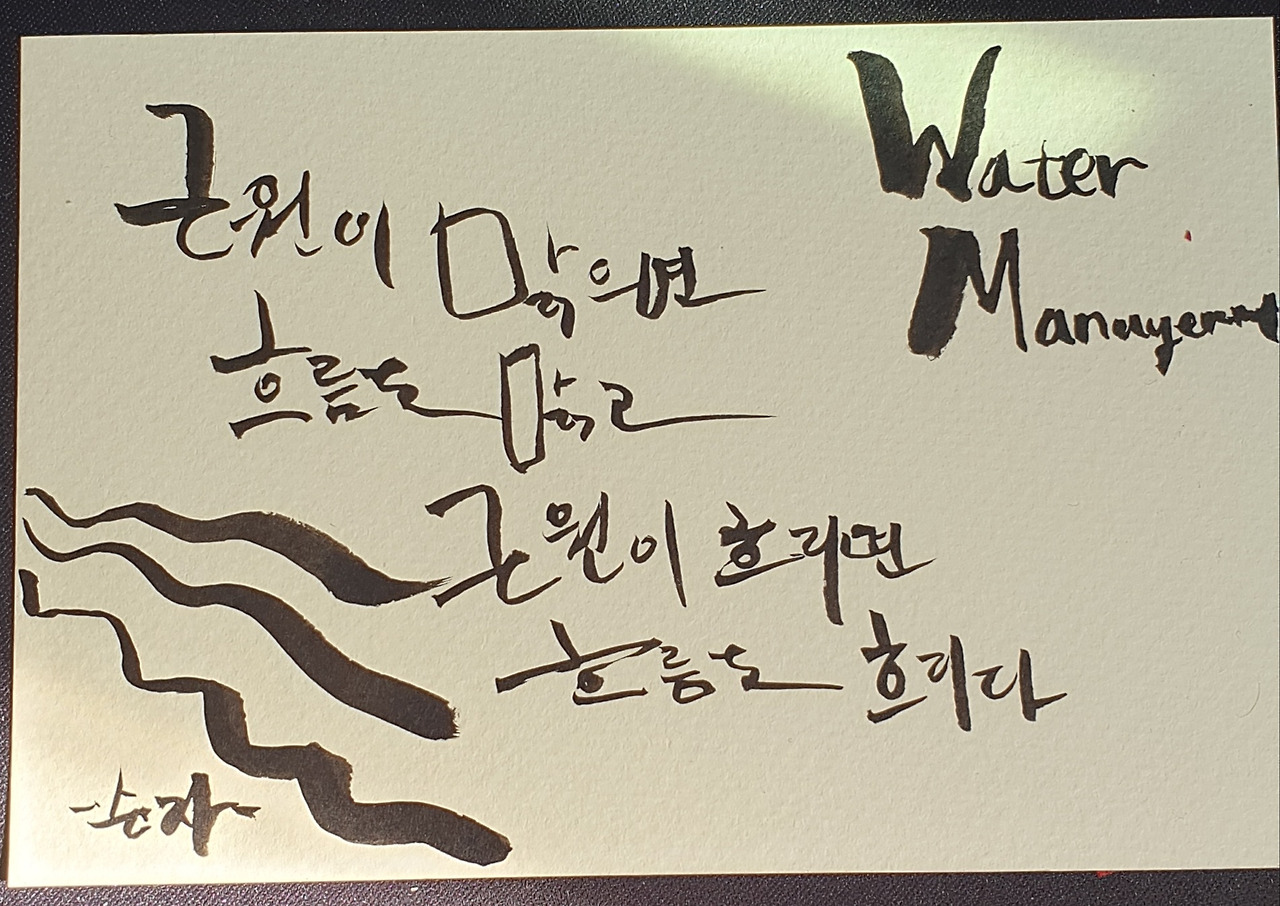 Water
Management
근원이 맑으면
흐름도 맑고
근원이 흐리면
흐름도 흐리다
-순자-